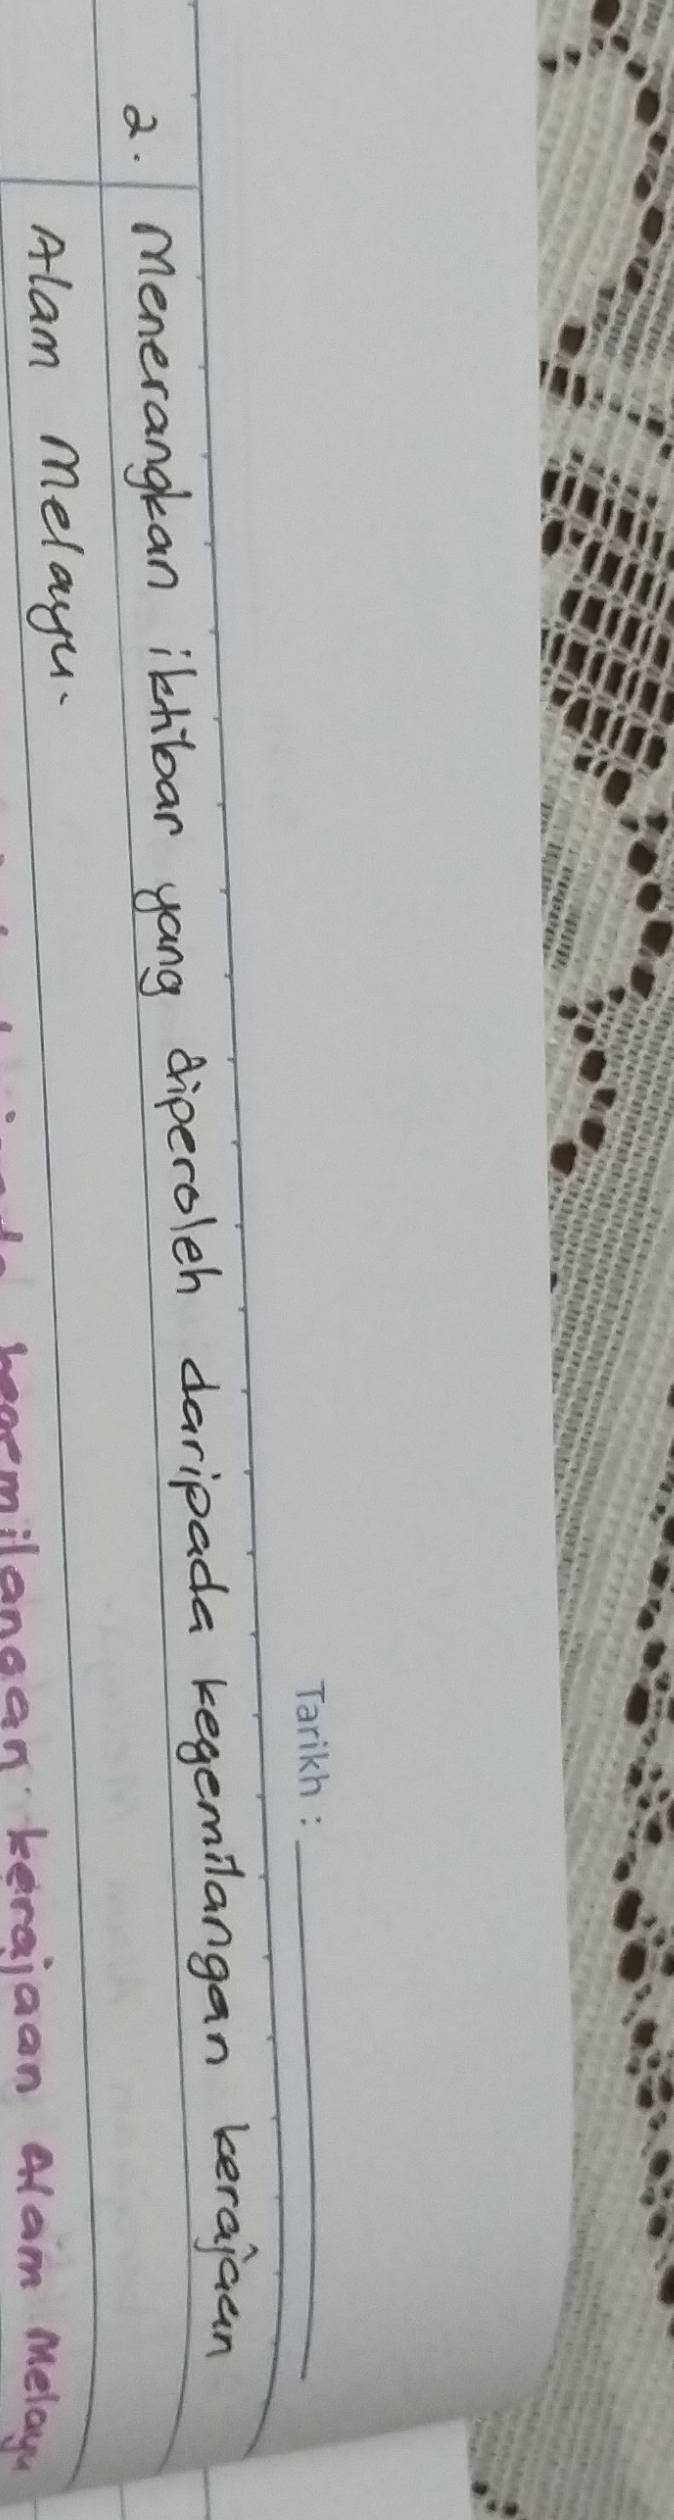 Tarikh :
2. Menerangkan iktibar yang diperoleh daripada kegemilangan kerajaan
Alam Melayu.
kerajaan Alam Melayu